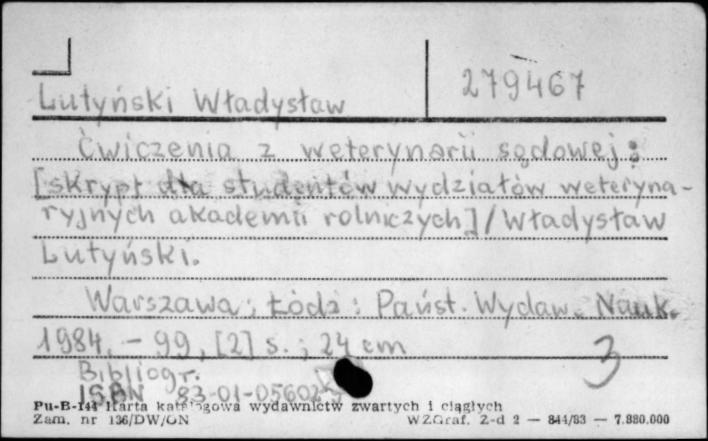 Lutyński Władysław
279467
Ćwiczenia z weterynarii sądowej :
[skrypt dla studentów wydziałów weteryna-
ryjnych akademii rolniczych] / Władysław
Lutyński.
Warszawa ; Łódź : Państ. Wydaw. Nauk.
1984. - 99, [2] s. ; 24 cm
3
Bibliogr.
ISBN 83-01-05602
Pu-B-144 Karta katalogowa wydawnictw zwartych i ciągłych
Zam. nr 136/DW/ON WZGraf. Z-d 2 — 844/83 — 7.880.000